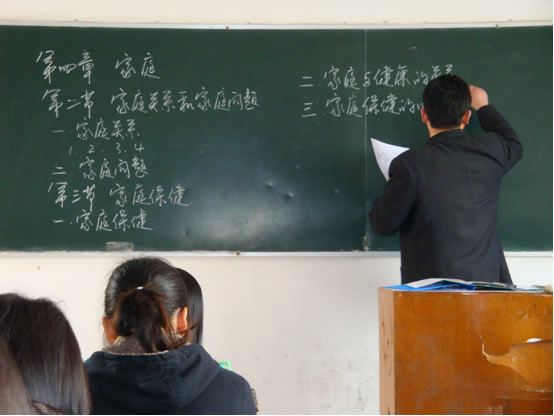 第四章 家庭
第二节 家庭关系和家庭问题
一.家庭关系
1. 2. 3. 4
二.家庭问题
第三节 家庭保健
一.家庭保健
二.家庭与健康的关系
三.家庭保健的